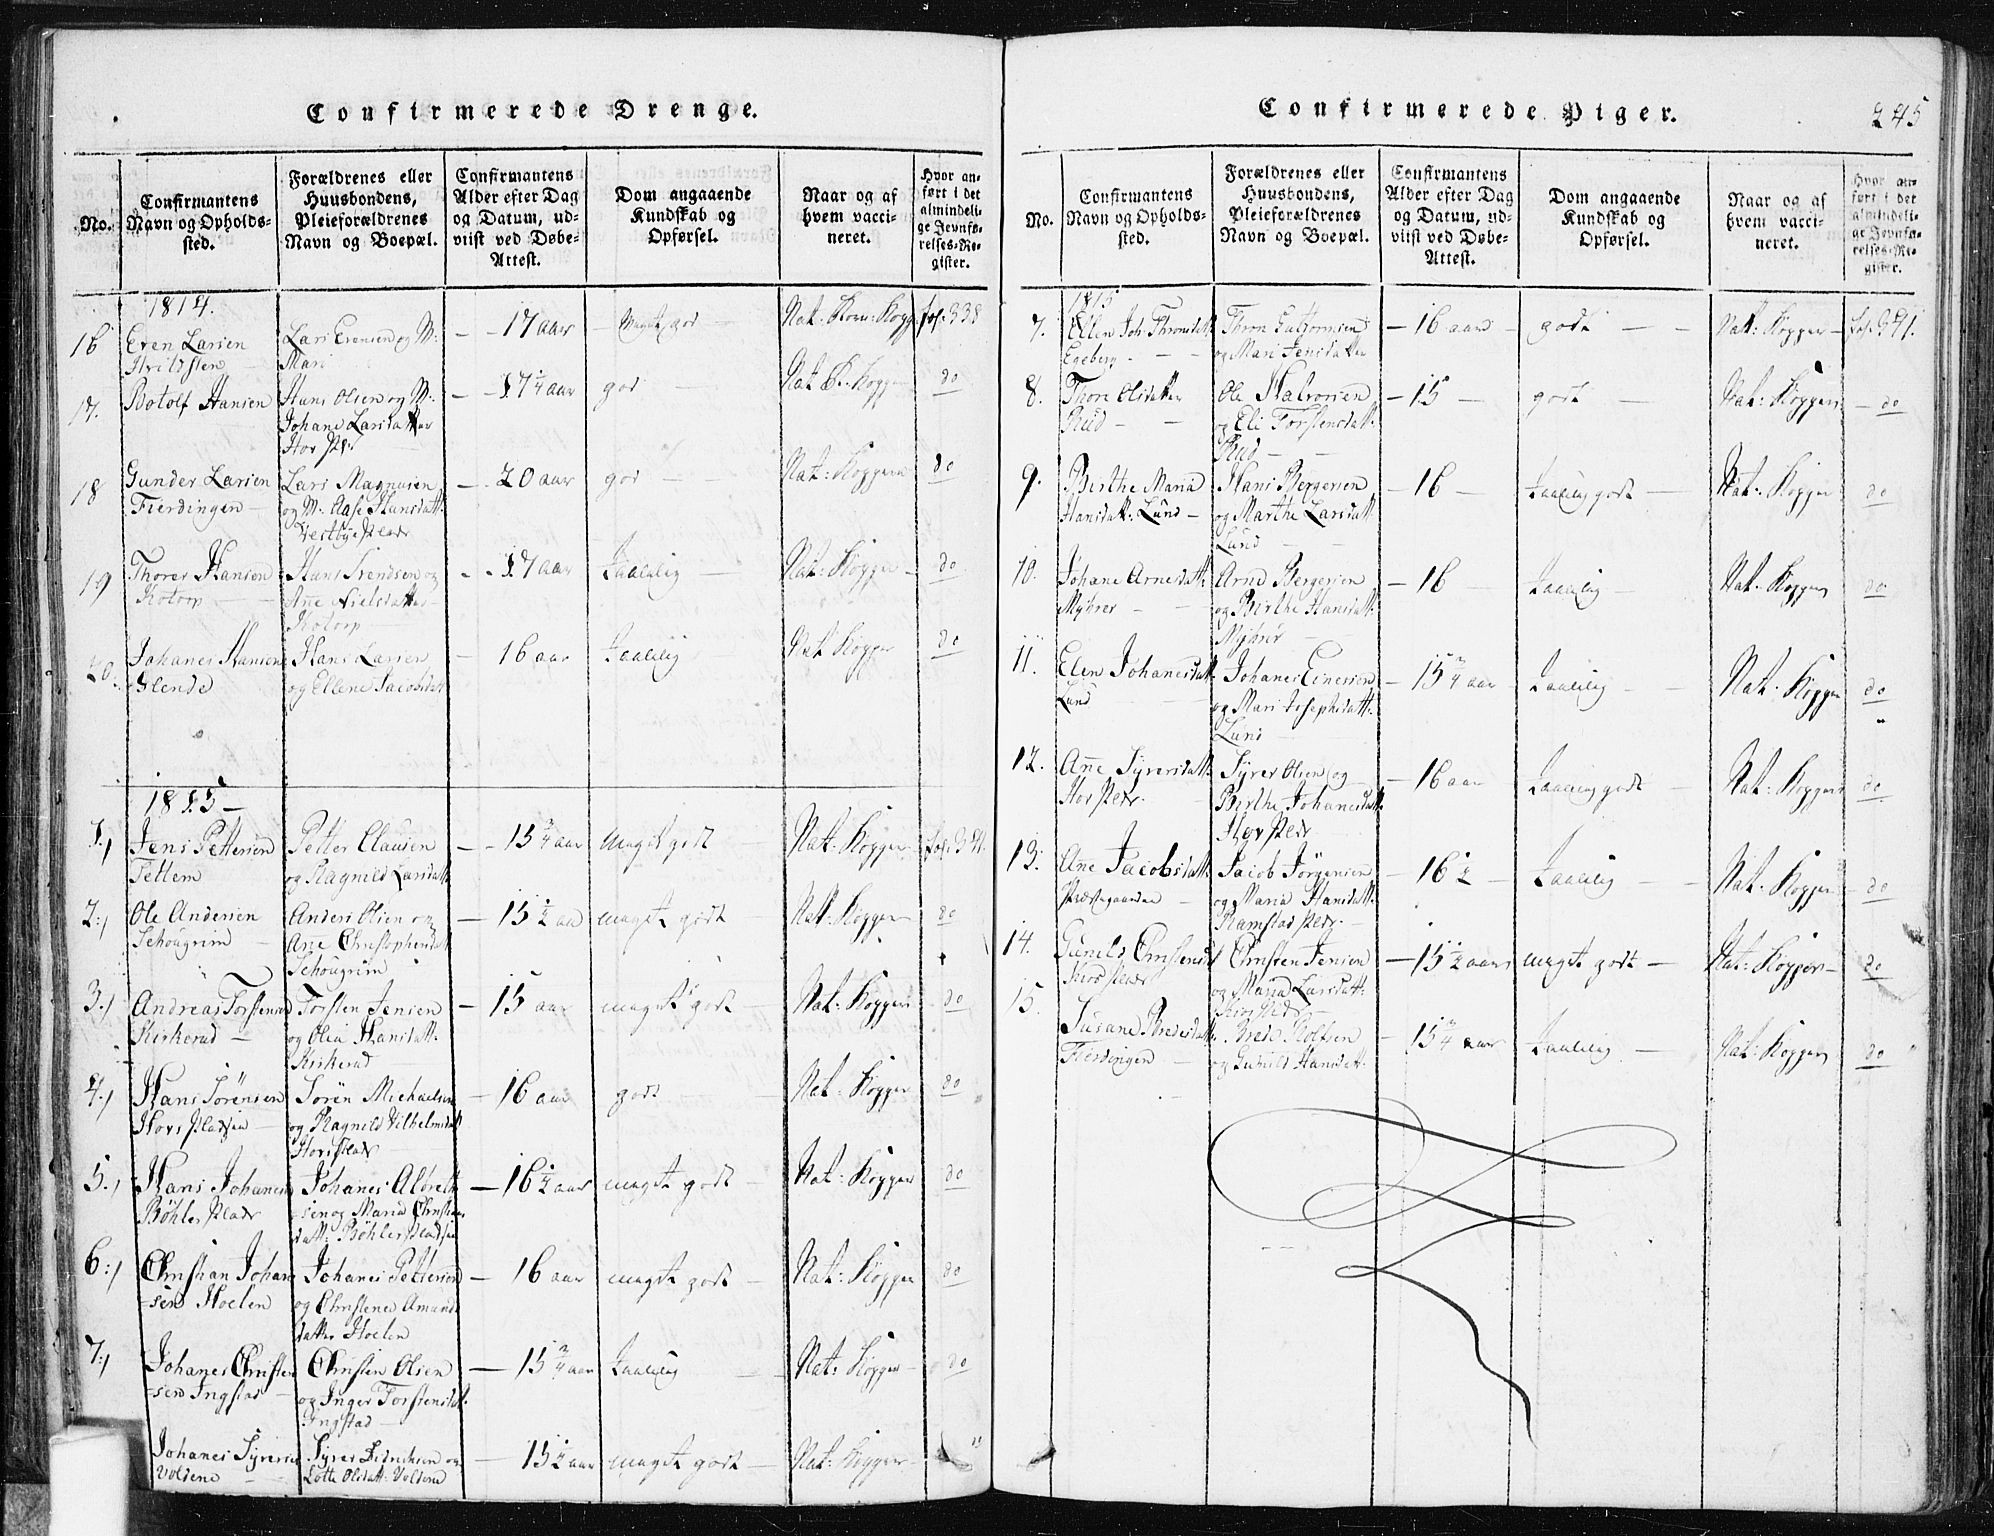 Confirmerede Drenge.
No.
Confirmantens
Navn og Opholds-
sted.
Forældrenes eller
Huusbondens,
Pleieforældrenes
Navn og Boepæl.
Confirmantens
Alder efter Dag
og Datum, ud-
viist ved Døbe-
Attest.
Dom angaaende
Kundskab og
Opførsel.
Naar og af
hvem vacci-
neret.
Hvor an-
ført i det
almindeli-
ge Jevnfø-
relses-Re-
gister.
1814.
16
Even Larsen
Lars Evensen og M:
Mari
17 aar
Meget god
Nat.
fol. 338
17.
Botolf Hansen
Hans Olsen og M:
Johane Larsdatter
Hov Pls
17 1/4 aar
god
Nat K. Kopper
do
18
Gunder Larsen
Fierdingen
Lars Magnusen
og M: Aase Hansdatt:
Vestbye Plads
20 aar
god
Nat: Kopper
do
19
Thorer Hansen
Rotorp
Hans Svendsen og
Añe Nielsdatter
Rotorp
17 aar
Taalelig
Nat: Kopper
do
20.
Johanes Hansen
Glende
Hans Larsen
og Ellene Jacobsdatt
16 aar
Taalelig
Nat Kopper
do
1815
1.)
Jens Pettersen
Tettem
Petter Clausen
og Ragnild Larsdatt:
15 3/4 aar
meget godt
Nat: Kopper
fol. 341.
2.)
Ole Andersen
Schougrim
Anders Olsen og
Ane Christophersdatt
Schougrim
15 1/2 aar
meget godt
Nat: Kopper
do
3.)
Andreas Torstensen
Kirkerud
Torsten Jensen
og Olea Hansdatt:
Kirkerud
15 aar
meget godt
Nat: Kopper
do
4.)
Hans Sörensen
Hovs Pladsen
Sören Michaelsen
og Ragnild Vilhelmsdatt
Hovs Plads
16 aar
godt
Nat: Kopper
do
5.)
Hans Johanes
Böhler Plads
Johanes Albreth
sen og Maria Christians
datt: Böhler Pladsen
16 1/2 aar
meget godt
Nat: Kopper
do
6.)
Christian Johan
sen Hoelen
Johanes Pettersen
og Christene Amund
datter Hoelen
16 aar
meget godt
Nat: Kopper
do
7.)
Johanes Christen
sen Ingstad
Christen Olsen
og Inger Torstensdatt.
Ingstad
15 3/4 aar
Taalelig
Nat: Kopper
do
Johanes Syversen
Voldene
Syver Didrichsen og
Lotte Olsdatt: Voldene
15 1/2 aar
meget godt
Nat: Kopper
Confirmerede Piger.
245
No.
Confirmantens
Navn og Opholds-
sted.
Forældrenes eller
Huusbondens,
Pleieforældrenes
Navn og Boepæl.
Confirmantens
Alder efter Dag
og Datum, ud-
viist ved Døbe-
Attest.
Dom angaaende
Kundskab og
Opførsel.
Naar og af
hvem vacci-
neret.
Hvor an-
ført i det
almindeli-
ge Jevnfø-
relses-Re-
gister.
1815
7.
Ellen Joh: Thronsdatt
Egeberg
Thron Guttormsen
og Mari Jensdatter
16 aar
godt
Nat: Kopper
fol. 341.
8.
Thore Olsdatter
Rud
Ole Halvorsen
og Eli Torstensdatt:
Rud
15
godt
Nat: Kopper
do
9.
Birthe Maria
Hansdatt: Lund
Hans Børgersen
og Marthe Larsdatt
Lund
16
Taalelig godt
Nat: Kopper
do
10.
Johane Arnesdatt:
Myhrer
Arne Bergersen
og Birthe Hansdatt:
Myhrer
16
Taalelig
Nat: Kopper
do
11.
Elen Johanesdatt:
Lund
Johanes Einersen
og Mari Josephsdatt:
Lund
15 3/4 aar
Taalelig
Nat: Kopper
do
12.
Añe Syversdatt:
Hov Plads
Syver Olsen og
Birthe Johanesdatt
Hov Plads
16 aar
Taalelig godt
Nat: Kopper
do
13.
Ane Jacobsdatt:
Præstegaarden
Jacob Jörgensen
og Maria Hansdatt:
Ramstad Plads
16 1/2
Taalelig
Nat: Kopper
do
14.
Gunild Christensd
Christen Jensen
og Maria Larsdatt:
15 1/2 aar
meget godt
Nat: Kopper
do
15.
Susane Bredesdatt
Fierdingen
Brede Rolfsen
og Gunild Hansdatt:
15 3/4 aar
Taalelig
Nat: Kopper
do